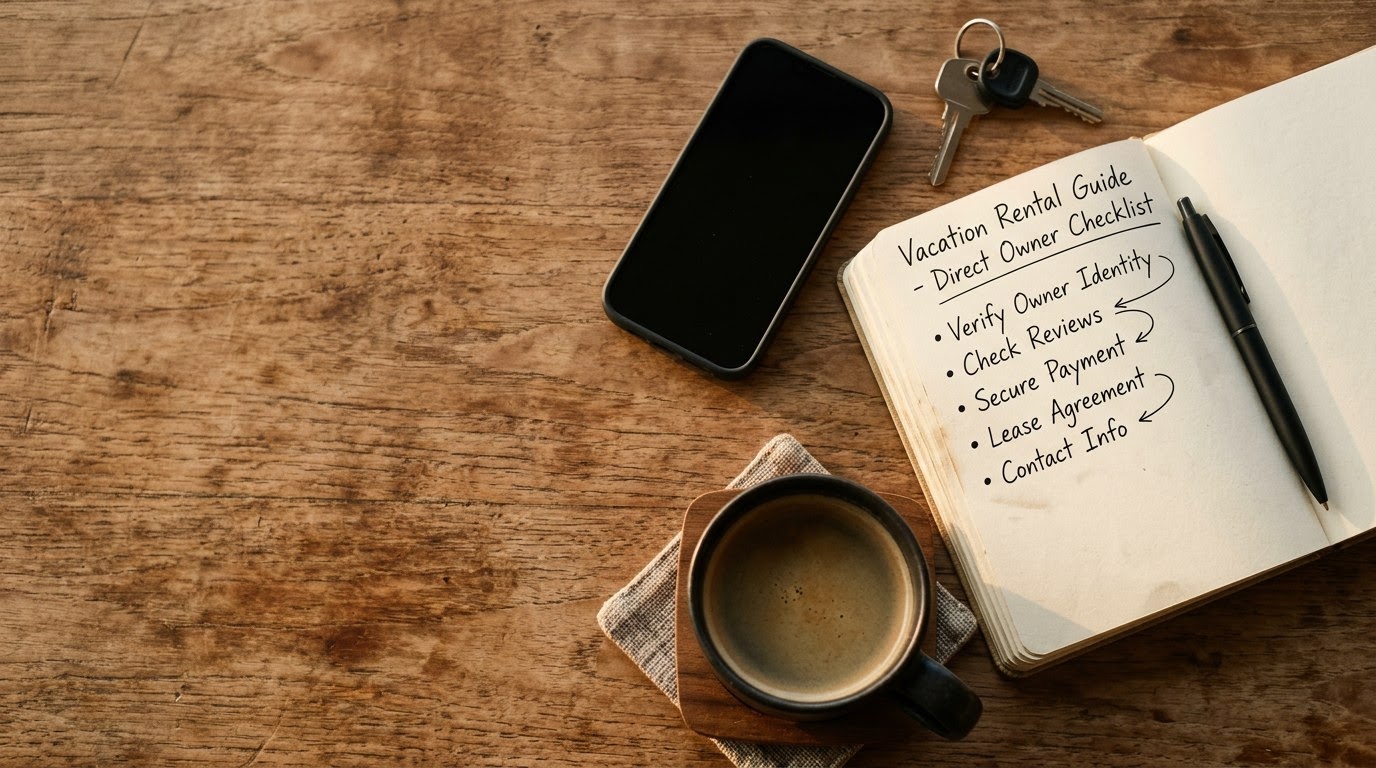 Vacation Rental Guide
- Direct Owner Checklist
• Verify Owner Identity
• Check Reviews
• Secure Payment
• Lease Agreement
• Contact Info